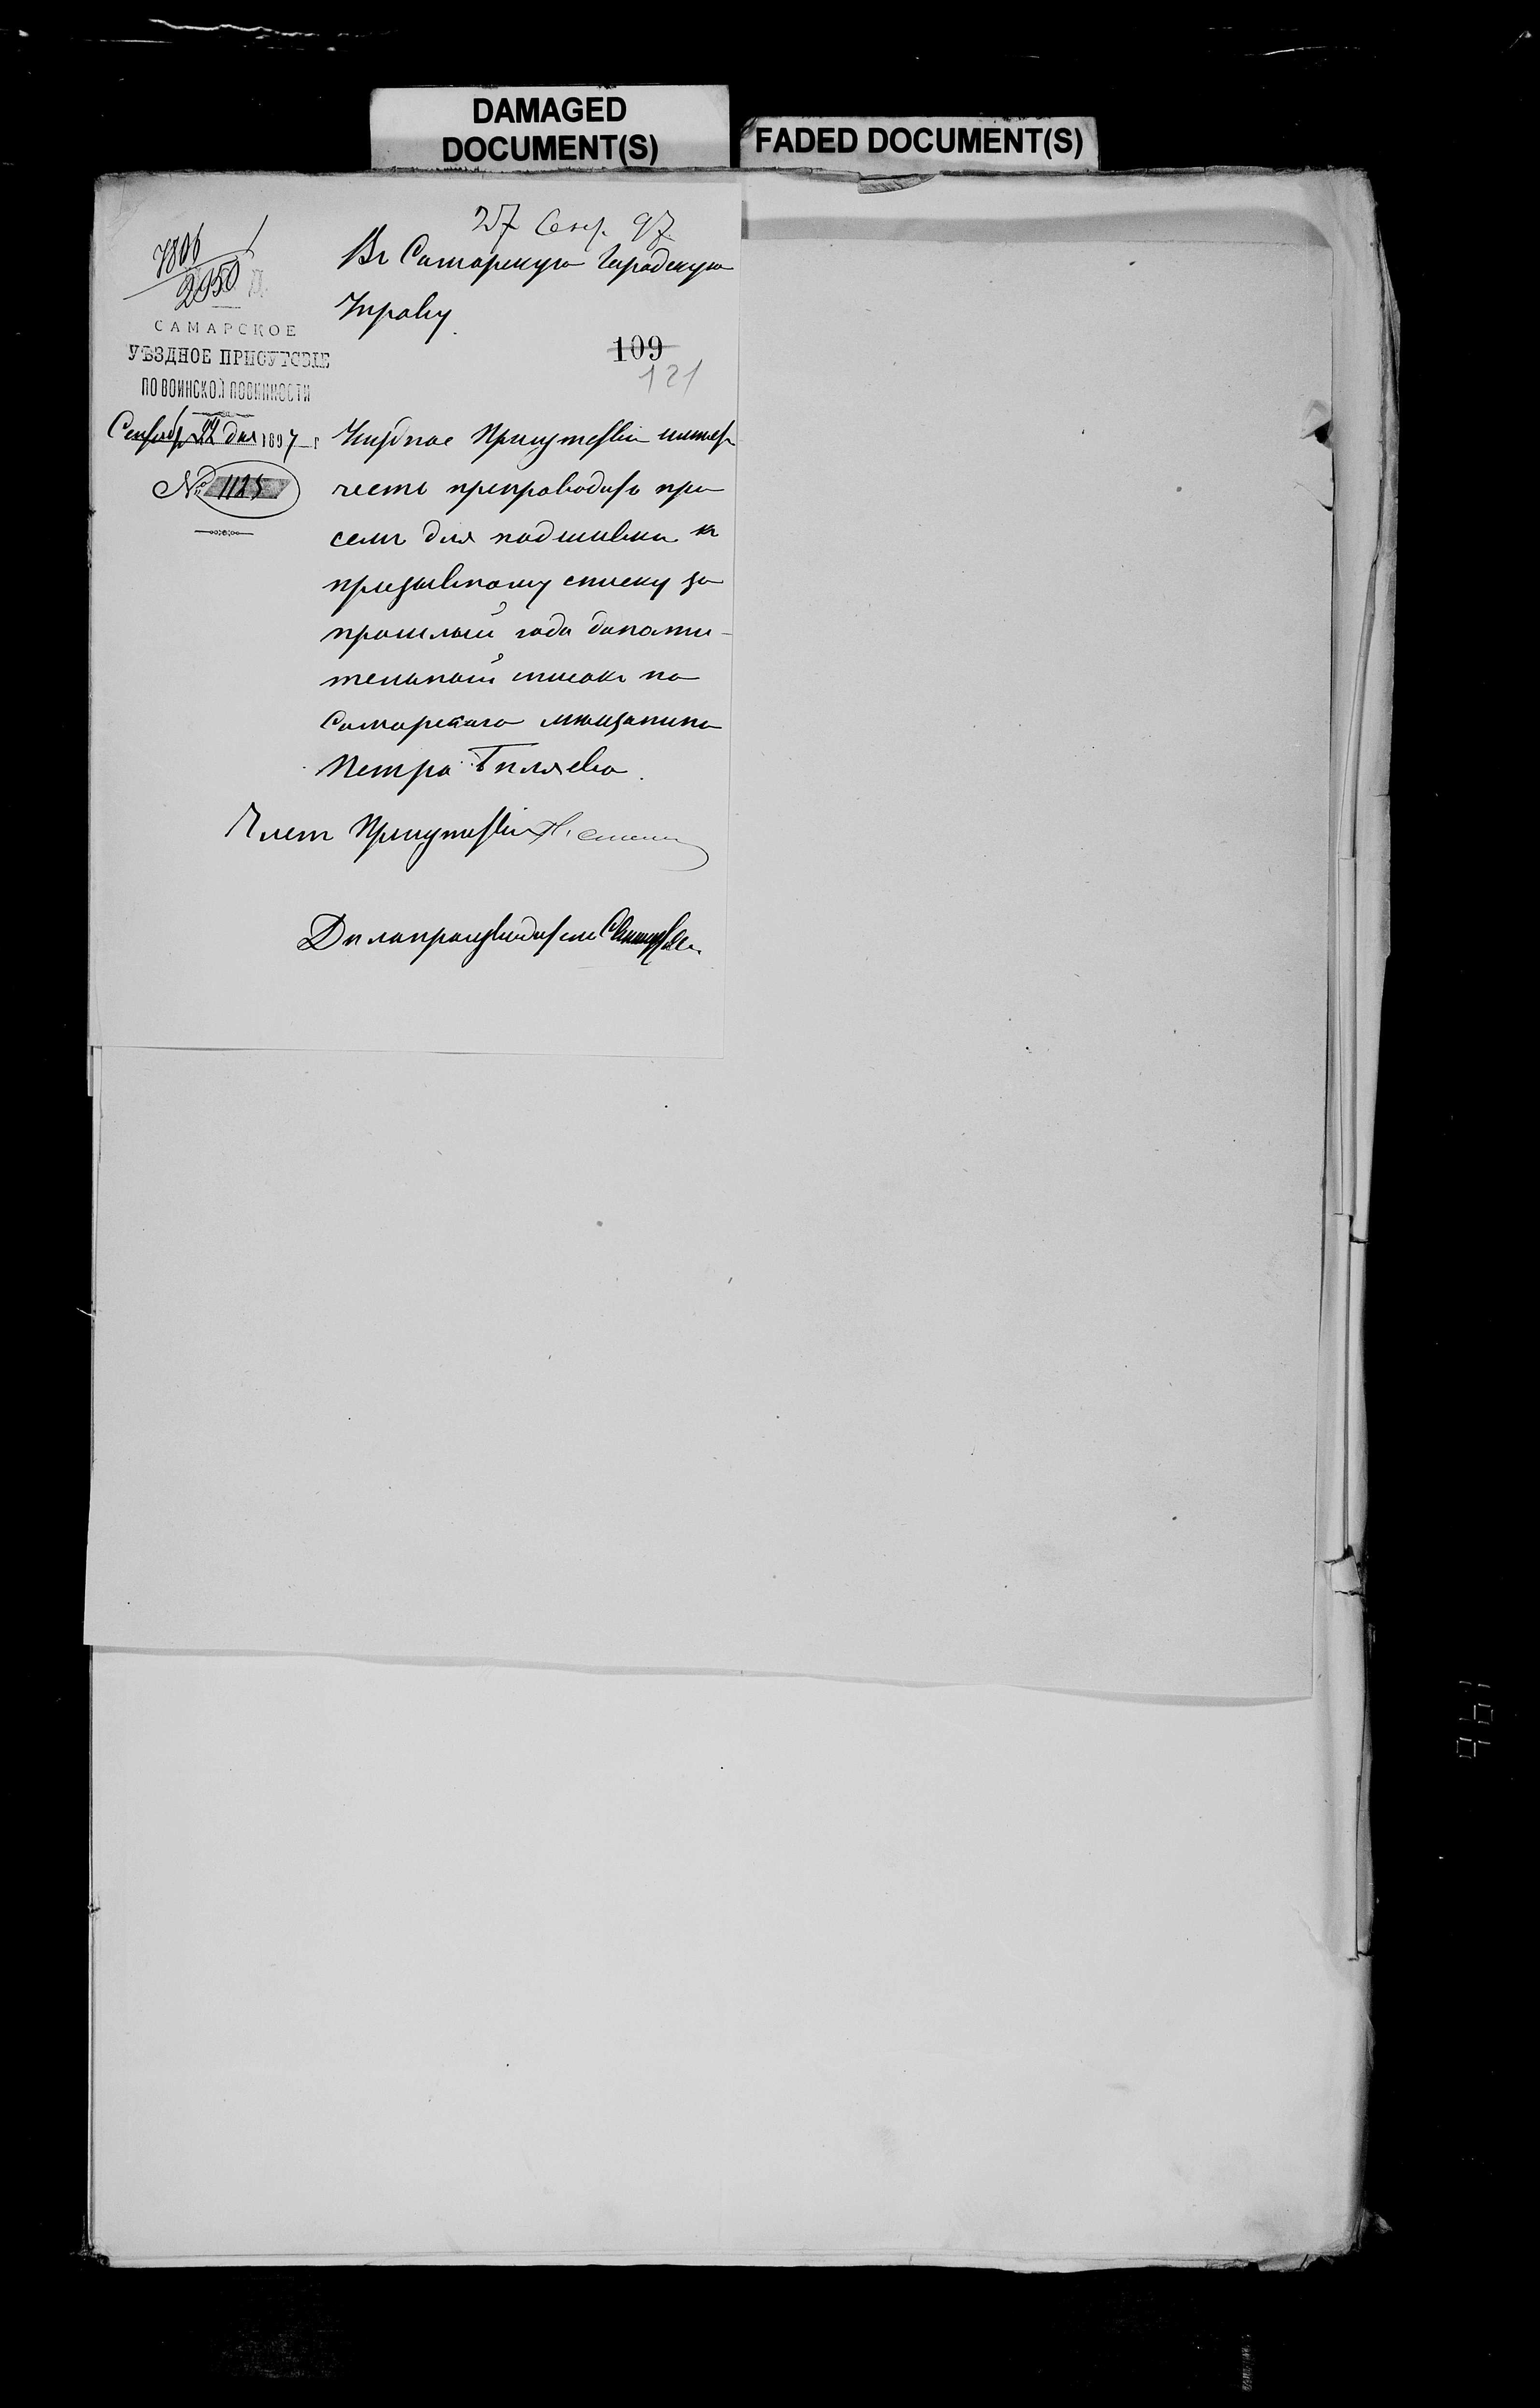 DAMAGED
DOCUMENT(S)
FADED DOCUMENT(S)
27 Сент. 97
7806
2950
Въ Самарскую Городскую
Управу.
САМАРСКОЕ
УѢЗДНОЕ ПРИСУТСВІЕ
ПО ВОИНСКОЙ ПОВИННОСТИ
109
121
Сентябр дня 1897 г
№ 1125
Уѣздное Присутствіе имѣетъ
честь препроводить при
семъ для подшивки къ
призывному списку за
прошлый годъ дополни-
тельный списокъ на
Самарскаго мѣщанина
Петра Бѣляева.
Членъ Присутствія
Дѣлопроизводитель